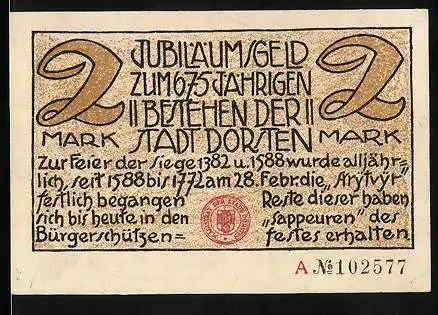 2 JUBILÄUMSGELD 2
ZUM 675 JÄHRIGEN
BESTEHEN DER
MARK STADT DORSTEN MARK
Zur Feier der Siege 1382 u. 1588 wurde alljähr=
lich, seit 1588 bis 1772 am 28. Febr. die „Strytvyr"
festlich begangen Reste dieser haben
sich bis heute in den „sappeuren" des
Bürgerschützen= festes erhalten
A № 102577